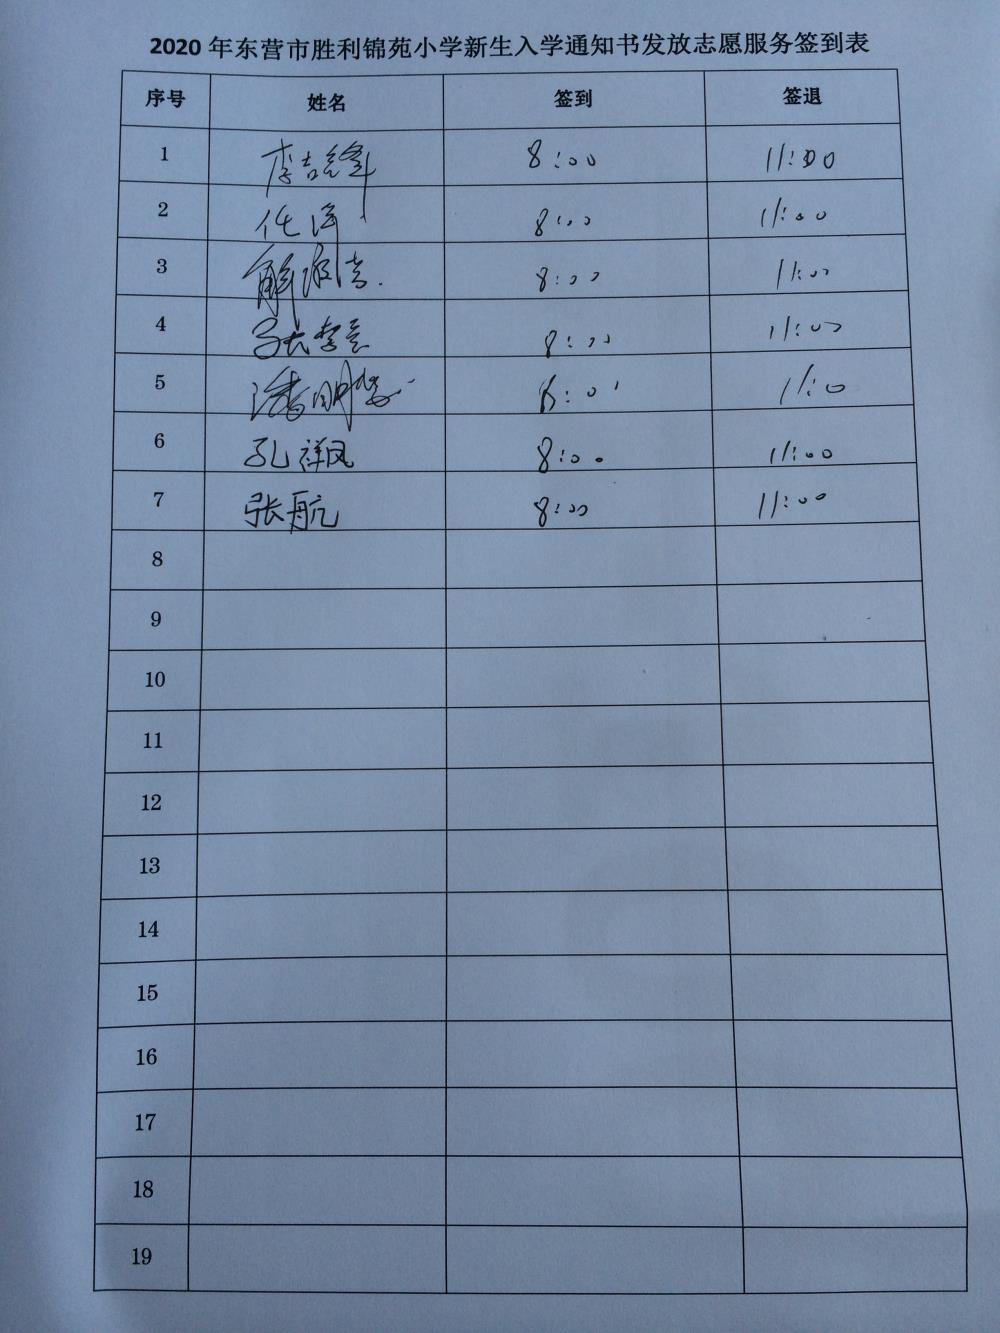 2020 年东营市胜利锦苑小学新生入学通知书发放志愿服务签到表
序号 姓名 签到 签退
1 8:00 11:00
2 任 8:00 11:00
3 解 8:00 11:00
4 8:00 11:00
5 潘明 8:00 11:0
6 孔祥凤 8:00 11:00
7 张航 8:00 11:00
8
9
10
11
12
13
14
15
16
17
18
19